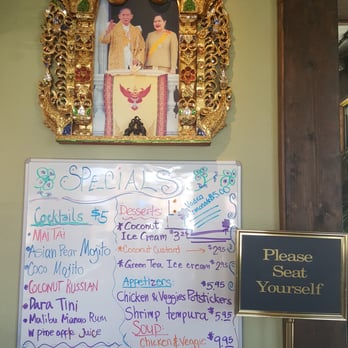 SPECIALS
Cocktails $5
• MAI TAI
• Asian Pear Mojito
• Coco Mojito
• COCONUT RUSSIAN
• Para Tini
• Malibu Mango Rum
w pineapple Juice
Vodka
$5.00
Desserts
• Coconut
Ice Cream
• Coconut Custard
• Green Tea Ice cream
Appetizers
Chicken & Veggies Potstickers
$5.95
Shrimp tempura $5.95
Soup
Chicken & Veggie
$9.95
Please
Seat
Yourself